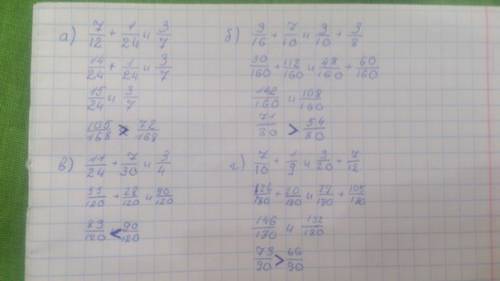 а) 7/12 + 1/24 и 3/7
14/24 + 1/24 и 3/7
15/24 и 3/7
105/168 > 72/168
б) 3/16 + 7/10 и 3/10 + 3/8
30/160 + 112/160 и 48/160 + 60/160
142/160 и 108/160
71/80 > 54/80
в) 11/24 + 7/30 и 3/4
55/120 + 28/120 и 90/120
83/120 < 90/120
г) 7/10 + 1/9 и 3/20 + 7/12
126/180 + 20/180 и 27/180 + 105/180
146/180 и 132/180
73/90 > 66/90